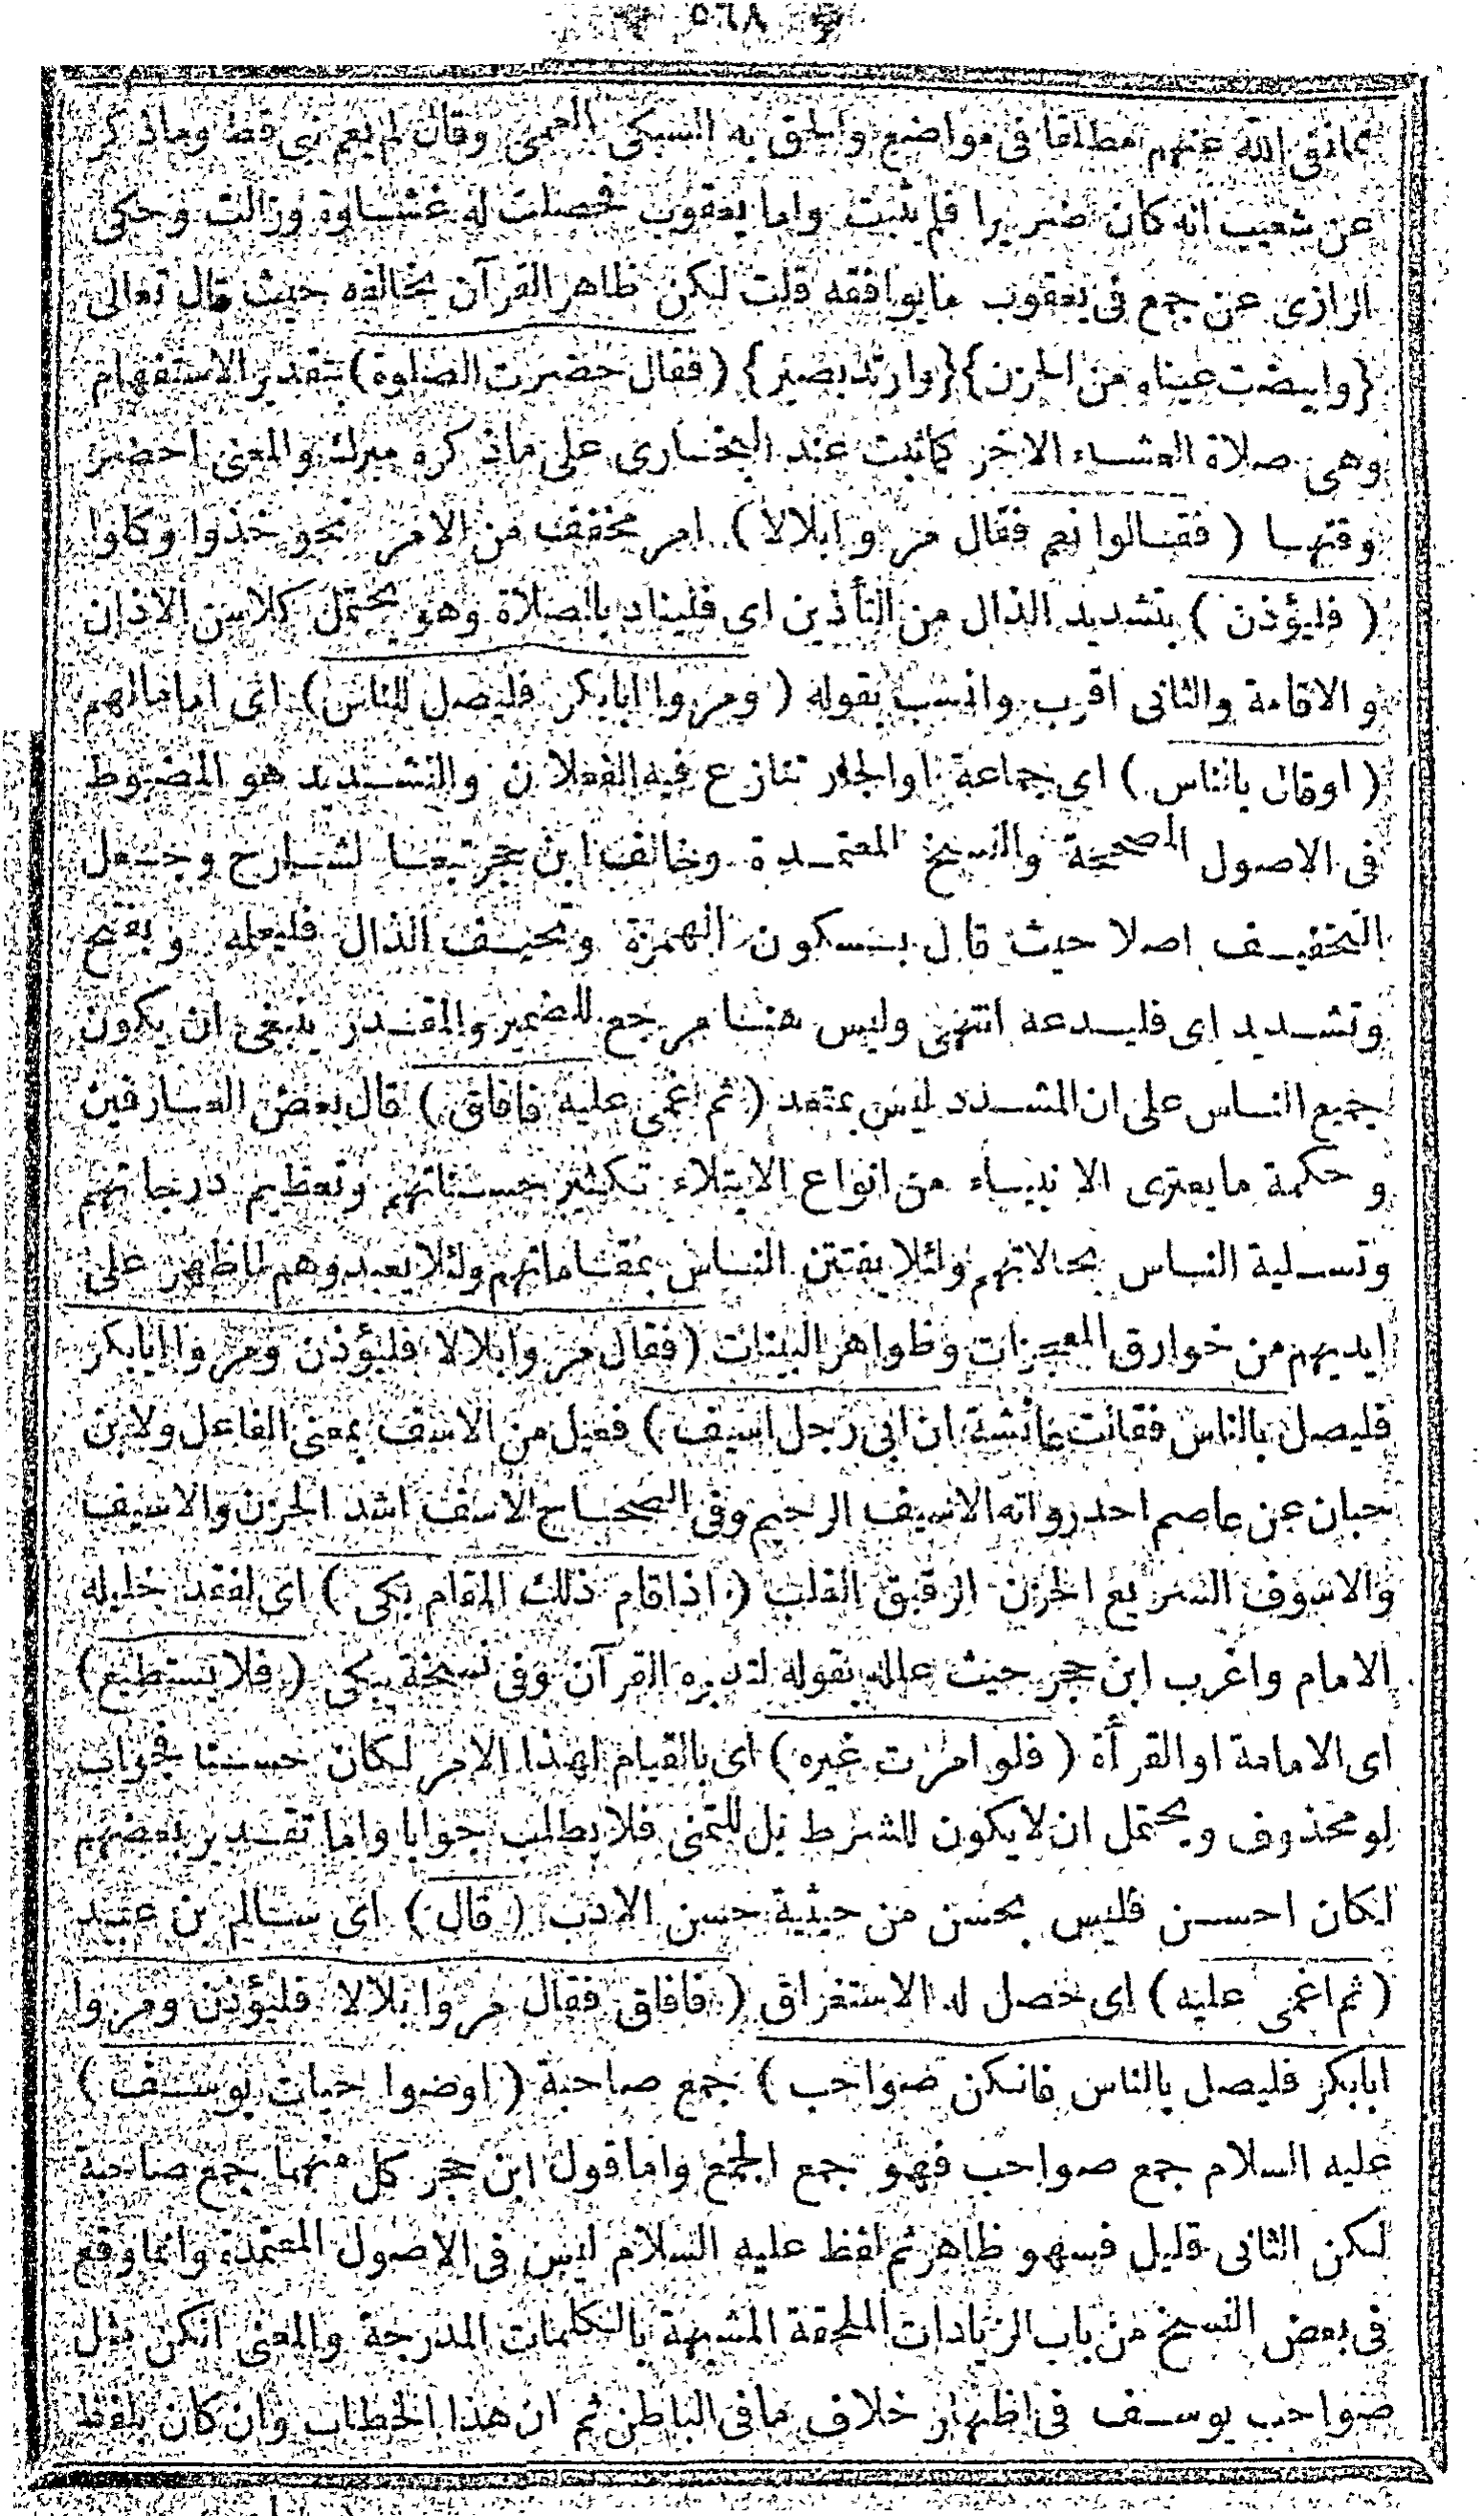 ﴿ ٥٦٨ ﴾
مما نفى الله عنهم مطلقا فى مواضع والحق به السبكى العمى وقال لم يعم نبى قط وماذكر
عن شعيب انه كان ضريرا فلم يثبت واما يعقوب فحصلت له غشاوة وزالت وحكى
الرازى عن جمع فى يعقوب مايوافقه قلت لكن ظاهر القرآن يخالفه حيث قال تعالى
{وابيضت عيناه من الحزن}{وارتد بصير} (فقال حضرت الصلوة) بتقدير الاستفهام
وهى صلاة العشاء الاخر كماثبت عند البخارى على ماذكره ميرك والمعنى احضر
وقتها ( فقالوا نعم فقال مروا بلالا ) امر مخفف من الامر نحو خذوا وكلوا
( فليؤذن ) بتشديد الذال من التأذين اى فليناد بالصلاة وهو يحتمل كلا من الاذان
و الاقامة والثانى اقرب وانسب بقوله ( ومروا ابابكر فليصل للناس ) اى اماما لهم
( اوقال بالناس ) اى جماعة اوالجار تنازع فيه الفعلان والتشديد هو المضبوط
فى الاصول المصححة والنسخ المعتمدة وخالف ابن حجر تبعا لشارح وجعل
التخفيف اصلا حيث قال بسكون الهمزة وتخفيف الذال فليعلمه وبفتح
وتشديد اى فليدعه انتهى وليس هنا مرجع للضمير والمقدر ينبغى ان يكون
جميع الناس على ان المشدد ليس بمتعد ( ثم اغمى عليه فافاق ) قال بعض العارفين
و حكمة مايعترى الانبياء من انواع الابتلاء تكثير حسناتهم وتعظيم درجاتهم
وتسلية الناس بحالاتهم ولئلا يفتتن الناس بمقاماتهم ولئلا يعبدوهم لماظهر على
ايديهم من خوارق المعجزات وظواهر البينات ( فقال مروا بلالا فليؤذن ومروا ابابكر
فليصل بالناس فقالت عائشة ان ابى رجل اسيف ) فعيل من الاسف بمعنى الفاعل ولابن
حبان عن عاصم احد رواته الاسيف الرحيم وفى الصحاح الاسف اشد الحزن والاسيف
والاسوف السريع الحزن الرقيق القلب ( اذا قام ذلك المقام بكى ) اى لفقد خليله
الامام واغرب ابن حجر حيث علله بقوله لتدبره القرآن وفى نسخة يبكى ( فلا يستطيع )
اى الامامة اوالقرأة ( فلو امرت غيره ) اى بالقيام لهذا الامر لكان حسنا فجواب
لو محذوف ويحتمل ان لايكون للشرط بل للتمنى فلا يطلب جوابا واما تقدير بعضهم
لكان احسن فليس بحسن من حيثية حسن الادب ( قال ) اى سالم بن عبيد
( ثم اغمى عليه ) اى حصل له الاستغراق ( فافاق فقال مروا بلالا فليؤذن ومروا
ابابكر فليصل بالناس فانكن صواحب ) جمع صاحبة ( اوصوا حبات يوسف )
عليه السلام جمع صواحب فهو جمع الجمع واماقول ابن حجر كل منهما جمع صاحبة
لكن الثانى قليل فسهو ظاهر ثم لفظ عليه السلام ليس فى الاصول المعتمدة وانماوقع
فى بعض النسخ من باب الزيادات الملحقة المشبهة بالكلمات المدرجة والمعنى انكن مثل
صواحب يوسف فى اظهار خلاف مافى الباطن ثم ان هذا الخطاب وان كان بلفظ